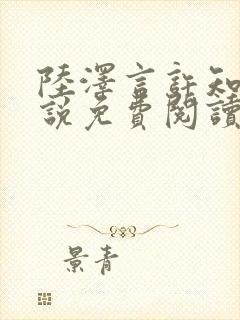 陸澤言許知
說免費閱讀
景青